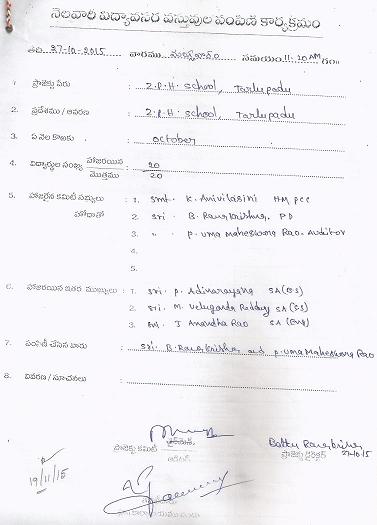 నెలవారి విద్యావసర వస్తువుల పంపిణి కార్యక్రమం
తేది 27-10-2015 వారము మంగళవారం సమయం 11:20 AM గం॥
1. ప్రాజెక్టు పేరు : Z.P.H School, Tarlupadu
2. ప్రదేశము / ఆవరణ : Z.P.H School, Tarlupadu
3. ఏ నెల కొఱకు : October
4. విద్యార్థుల సంఖ్య హాజరయిన : 20
మొత్తము 20
5. హాజరైన కమిటీ సభ్యులు : 1. Smt. K. Anivilasini HM PCC
హోదాతో 2. Sri B. Ramakrishna. PD
3. " . P. Uma Maheswara Rao. Auditor
4.
5.
6. హాజరయిన ఇతర ముఖ్యులు : 1. Sri P. Adinarayana SA (SS)
2. Sri. M. Velugonda Reddy SA (SS)
3. Sri. J Anandha Rao SA (Eng)
7. పంపిణి చేసిన వారు : Sri. B. Ramakrishna and P. Uma Maheswara Rao
8. వివరణ / సూచనలు :
ప్రాజెక్టు కమిటి ఛైర్మెన్, ప్రాజెక్టు డైరెక్టర్
27-10-15
19/11/15